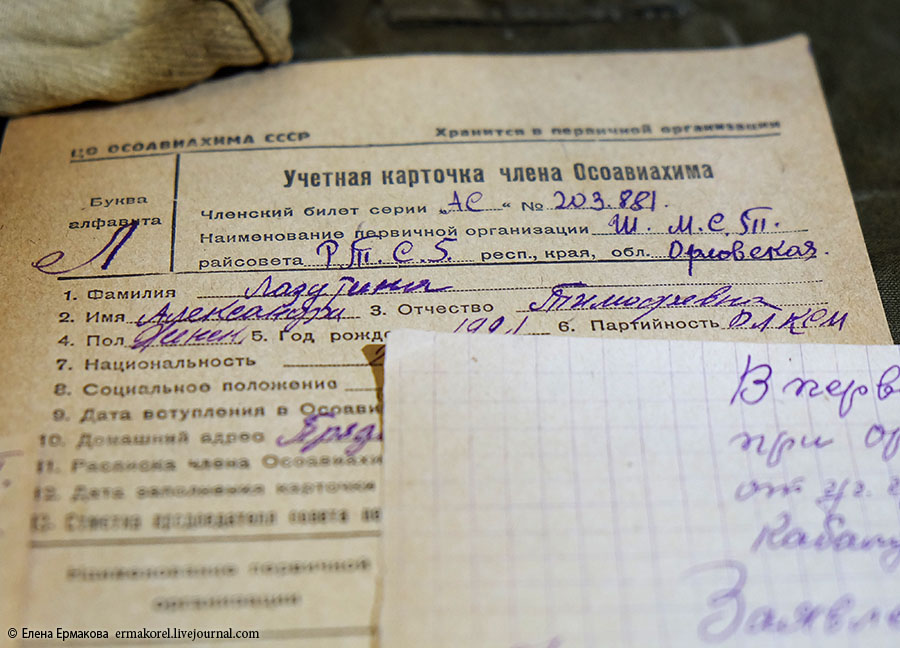 ЦО ОСОАВИАХИМА СССР
Хранится в первичной организации
Буква
алфавита
Л
Учетная карточка члена Осоавиахима
Членский билет серии „АС“ № 203.881.
Наименование первичной организации Ш. М.С.
райсовета Р.Т.С.5. респ., края, обл. Орловская
1. Фамилия Лазутина
2. Имя Александра 3. Отчество Тимофеевна
4. Пол женск. 5. Год рожде 1921 6. Партийность ВЛКСМ
7. Национальность
8. Социальное положение
9. Дата вступления в Осоави
10. Домашний адрес
11. Расписка члена Осоавиахи
12. Дата заполнения карточки
13. Отметка председателя совета
Наименование первичной
организации
В перв
при ор
от уч.
Кабан
Заявле
© Елена Ермакова ermakorel.livejournal.com